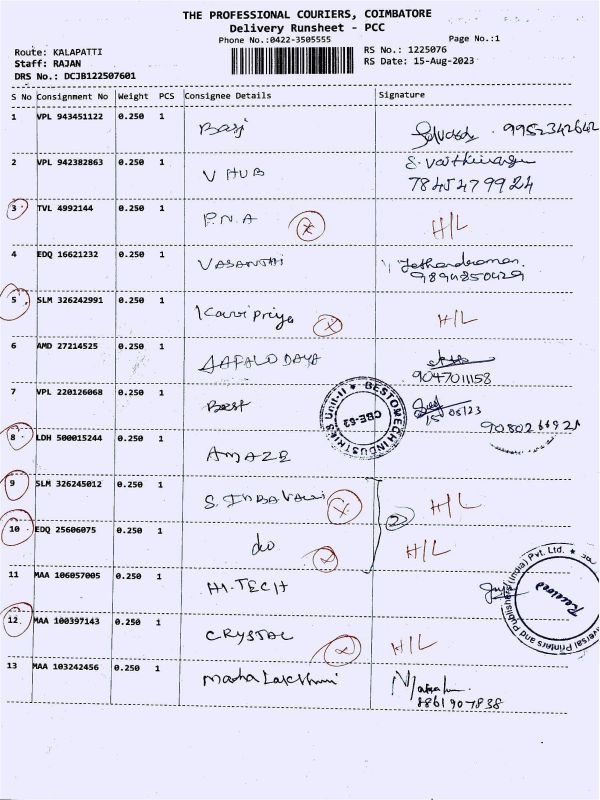 THE PROFESSIONAL COURIERS, COIMBATORE
Delivery Runsheet - PCC
Phone No.:0422-3505555 Page No.:1
Route: KALAPATTI RS No.: 1225076
Staff: RAJAN RS Date: 15-Aug-2023
DRS No.: DCJB122507601
S No Consignment No Weight PCS Consignee Details Signature
1 VPL 943451122 0.250 1 9952342642
2 VPL 942382863 0.250 1 V HUB 7845479924
3 TVL 4992144 0.250 1 P.N.A H/L
4 EDQ 16621232 0.250 1 VASANTHI
9894850429
5 SLM 326242991 0.250 1 Kavipriya H/L
6 AMD 27214525 0.250 1
9047011158
7 VPL 220126068 0.250 1 Best
BESTOMECH INDUSTRIES Unit-II
CBE-62
8 LDH 500015244 0.250 1 AMAZE
9 SLM 326245012 0.250 1 H/L
2
10 EDQ 25606075 0.250 1 do H/L
11 MAA 106057005 0.250 1 HI.TECH
Universal Printers and Publishers (India) Pvt. Ltd.
Received
12 MAA 100397143 0.250 1 CRYSTAL H/L
13 MAA 103242456 0.250 1 Maha Lakshmi
8861907838